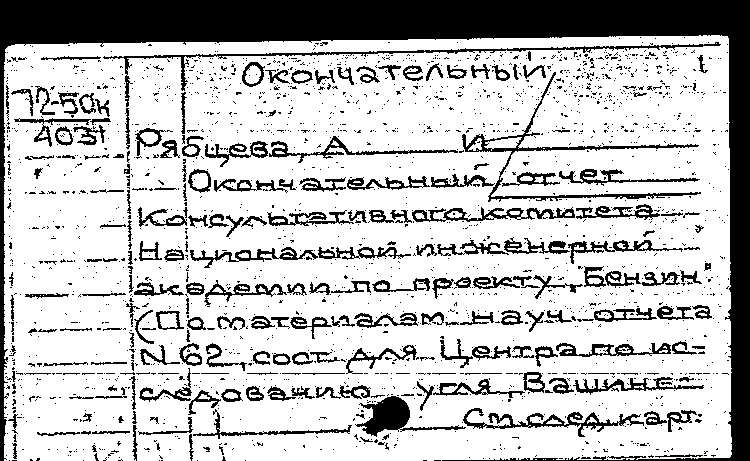 Окончательный
1
72-50к
4031
Рябцева, А И
Окончательный отчет
Консультативного комитета
Национальной инженерной
академии по проекту „Бензин"
(По материалам науч. отчета
N 62, сост. для Центра по ис-
следованию угля, Вашинг-
См. след. карт.